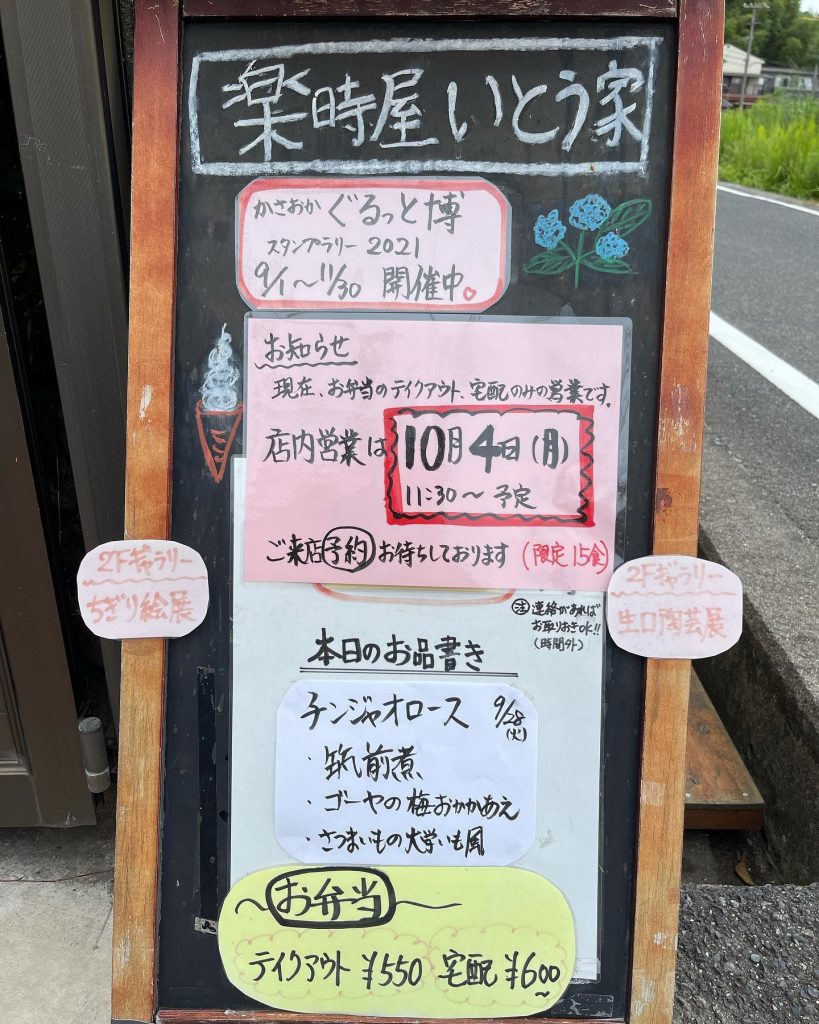 楽時屋いとう家
かさおか ぐるっと博
スタンプラリー 2021
9/1〜11/30 開催中
お知らせ
現在、お弁当のテイクアウト、宅配のみの営業です。
店内営業は 10月4日(月)
11:30〜 予定
ご来店予約お待ちしております (限定15食)
2Fギャラリー
ちぎり絵展
2Fギャラリー
生口陶芸展
注 連絡があれば
お取りおきOK!!
(時間外)
本日のお品書き
チンジャオロース 9/28
(火)
・筑前煮
・ゴーヤの梅おかかあえ
・さつまいもの大学いも風
〜お弁当〜
テイクアウト ¥550 宅配 ¥600〜